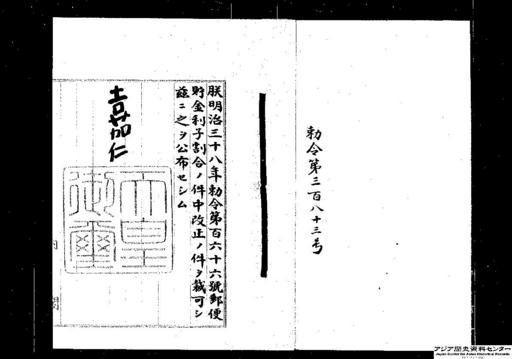 勅令第三百八十三号
朕明治三十八年勅令第百六十六號郵便
貯金利子割合ノ件中改正ノ件ヲ裁可シ
茲ニ之ヲ公布セシム
嘉仁
天皇
御璽
内
閣
アジア歴史資料センター
Japan Center for Asian Historical Records